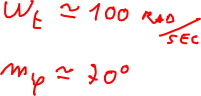 ωt ≃ 100 RAD/SEC
mφ ≃ 20°